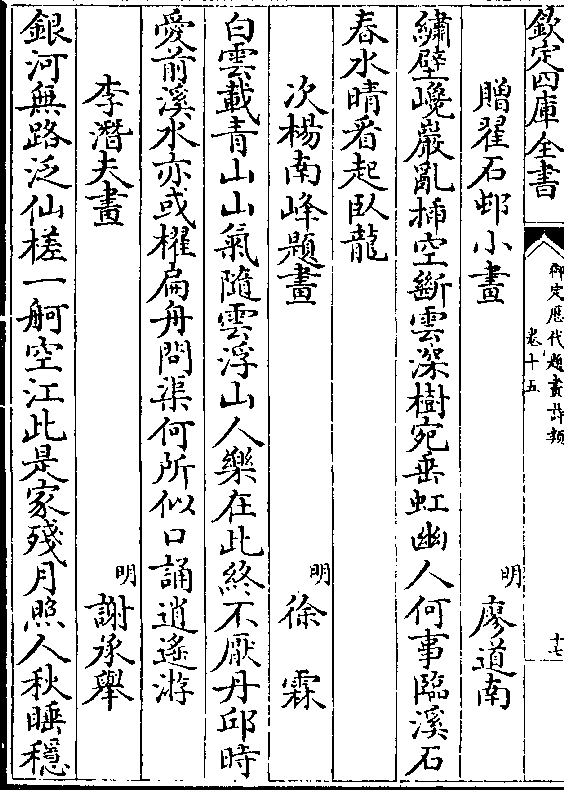 欽定四庫全書
御定歷代題畫詩類
卷十五
十七
贈翟石邨小畫
明 廖道南
繡壁巉巖亂揷空斷雲深樹宛垂虹幽人何事臨溪石
春水晴看起臥龍
次楊南峰題畫
明 徐霖
白雲載青山山氣隨雲浮山人樂在此終不厭丹邱時
愛前溪水亦或櫂扁舟問渠何所似口誦逍遙游
李潛夫畫
明 謝承舉
銀河無路泛仙槎一舸空江此是家殘月照人秋睡穩